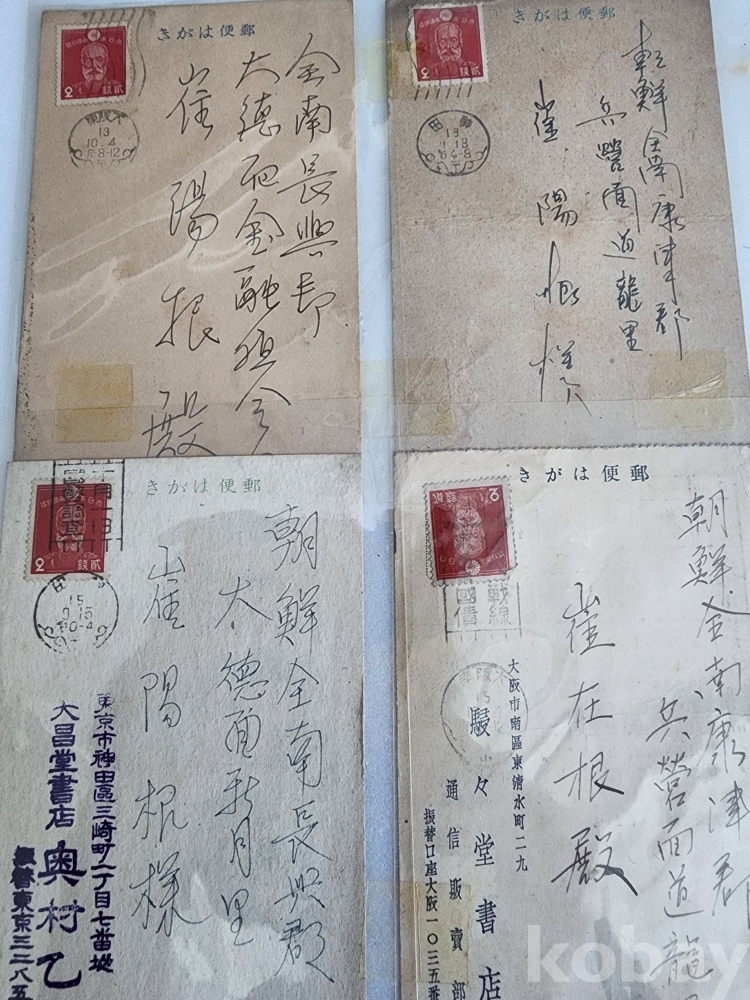 きがは便郵
貳銭
2
大阪東
13
10.4
后8-12
全南長興郡
大德面金融組合
崔陽根殿
きがは便郵
貳銭
2
神田
13
后4-8
朝鮮全南康津郡
兵營面道龍里
崔陽根様
きがは便郵
貳銭
2
調査
田
15
朝鮮全南長興郡
大德面新月里
崔陽根様
東京市神田區三崎町一丁目七番地
大昌堂書店
奥村乙
振替東京三二八五
きがは便郵
2
戰線
國債
大阪
15
朝鮮全南康津郡
兵營面道龍里
崔在根殿
大阪市南區東清水町二九
駸々堂書店
通信販賣部
振替口座大阪一〇三五番
kobay